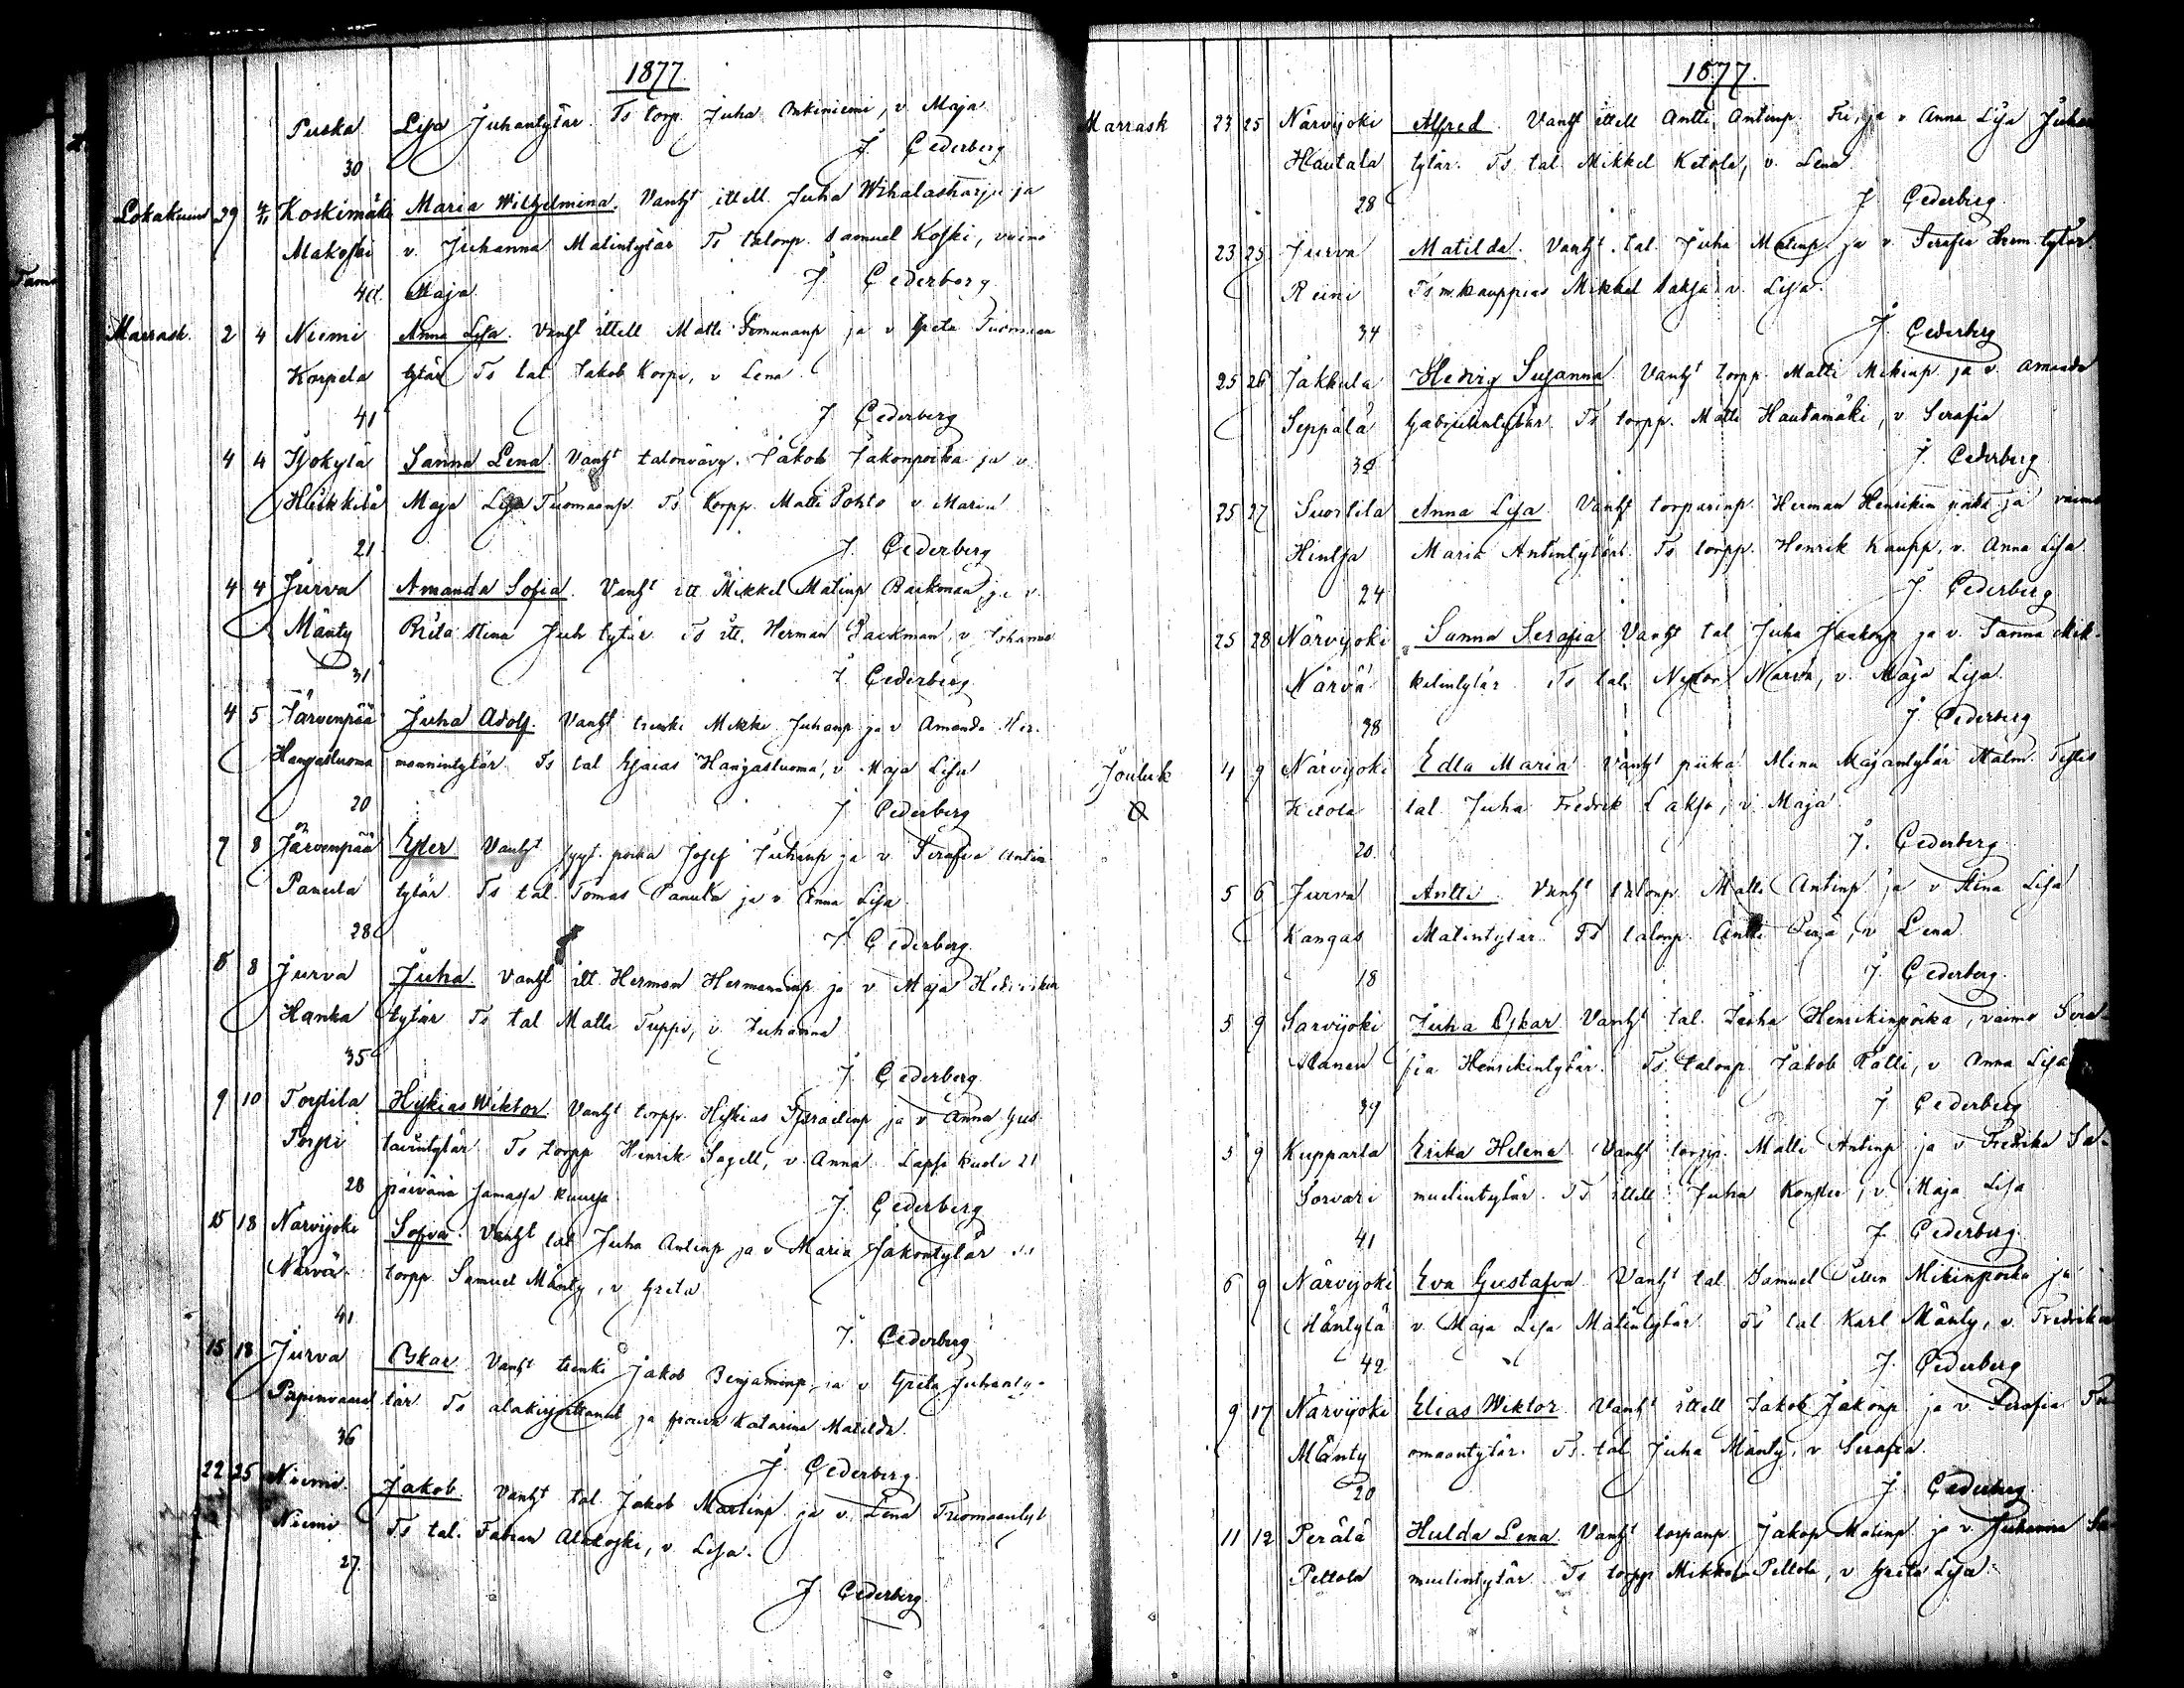 1877
Puska Lisa Juhantytär. Ts torp. Juha, v. Maja
30 J. Cederberg
Lokakuun 29 4/11 Koskimäki Maria Wilhelmina. Vanht ittell. Juha Wihalasharju ja
Makoski v. Juhanna Matintytär Ts talonp. Samuel Koski, vaimo
40 Maja. J. Cederberg
Marrask. 2 4 Niemi Anna Lisa. Vanht ittell Matti ja v Greta Tuomaan
Korpela tytär Ts tal. Jakob Korpi, v Lena
41 J Cederberg
4 4 Sanna Lena. Vanht talonvävy. Jakob Jakonpoika ja v.
Heikkilä Maja Lisa Tuomaanp. Ts torpp. Matti Pohto v Maria
21 J. Cederberg
4 4 Jurva Amanda Sofia. Vanht itt Mikkel Matinp Backman ja v.
Mänty Stina Juh tytär Ts itt. Herman Backman, v Johanna
31 J Cederberg
4 5 Järvenpää Juha Adolf. Vanht trenki Mikki Juhanp ja v Amanda Her-
Hangasluoma mannintytär. Ts tal Esaias Hangasluoma, v Maja Lisa
20 J Cederberg
7 8 Järvenpää Ester Vanht poika Josef Juhanp ja v. Serafia Antin
Panula tytär. Ts tal. Tomas Panula ja v Anna Lisa
28 J Cederberg
8 8 Jurva Juha. Vanht itt. Herman Hermaninp ja v Maja
Hanka tytär Ts tal Matti Tuppi, v Juhanna
35 J. Cederberg
9 10 Torstila Hiskias Wiktor. Vanht torpp Hiskias Israelinp ja v Anna Gus
Torpi tavintytär Ts torpp Henrik Sagell, v. Anna. Lapsi kuoli 21
28 päivänä samassa kuussa J. Cederberg
15 18 Närvijoki Sofia. Vanht tal Juha Antinp ja v Maria Jakontytär
Närvä torpp Samuel Mänty, v Greta
41 J. Cederberg
15 18 Jurva Oskar Vanht trenki Jakob Benjaminp, ja v Greta Juhanty-
tär Ts alakirjoittanut ja frouva Katarina Matilda.
36 J. Cederberg.
22 25 Niemi Jakob. Vanht tal Jakob Martinp ja v. Lena Tuomaantyt
Niemi Ts tal. Fabian Alakoski, v. Lisa.
27. J Cederberg
1877.
Marrask 23 25 Närvijoki Alfred. Vanht ittell Antti Antinp ja v Anna Lisa Juhan
Hautala tytär. Ts tal Mikkel Ketola, v. Lena
28 J. Cederberg.
23 25 Jurva Matilda. Vanht. tal. Juha Matinp ja v. Serafia tytär.
Reini Ts m. kauppias Mikkel Laksa v. Lisa.
34 J. Cederberg
25 26 Jakkula Hedvig Susanna Vanht torpp. Matti Mikinp ja v Amanda
Seppälä Gabrielintytär Ts torpp. Matti Hautamäki, v Serafia
J. Cederberg
25 27 Suostila Anna Lisa Vanht torparinp. Herman Henrikin poika ja vaimo
Hintsa Maria Antintytär. Ts torpp. Henrik Kaupp, v. Anna Lisa
24 J. Cederberg
25 28 Närvijoki Sanna Serafia Vanht tal Juha Jaakonp ja v. Sanna Mik-
Närvä kelintytär Ts tal. Närvä, v. Maja Lisa.
38 J. Cederberg
Jouluk 4 9 Närvijoki Edla Maria Vanht piika Miina Majantytär Malm.
Ketola tal. Juha Fredrik Laksa, v. Maja
20. J. Cederberg
5 6 Jurva Antti. Vanht talonp. Matti Antinp ja v Stina Lisa
Kangas Matintytär. Ts talonp. Antti Perä, v Lena.
18 J. Cederberg.
5 9 Särvijoki Juha Oskar Vanht tal. Juha Henrikinpoika, vaimo Sera-
fia Henrikintytär. Ts talonp. Jakob Rälli, v Anna Lisa
39 J Cederberg
5 9 Kupparla Erika Helena Vanht torpp. Matti Antinp ja v Fredrika Sa-
Sorvari muelintytär. Ts ittell Juha, v. Maja Lisa
41 J Cederberg.
6 9 Närvijoki Eva Gustafva. Vanht tal Samuel Mikinpoika ja
Mäntylä v. Maja Lisa Matintytär Ts tal Karl Mänty, v. Fredrika
42. J. Cederberg
9 17 Närvijoki Elias Wiktor Vanht ittell Jakob Jakonp ja v. Serafia Tu
Mänty omaantytär. Ts. tal Juha Mänty, v Serafia.
20 J. Cederberg.
11 12 Perälä Hulda Lena. Vanht torpanp Jakop Matinp ja v. Juhanna Sa
Peltola muelintytär Ts torpp Mikkel Peltola, v Greta Lisa